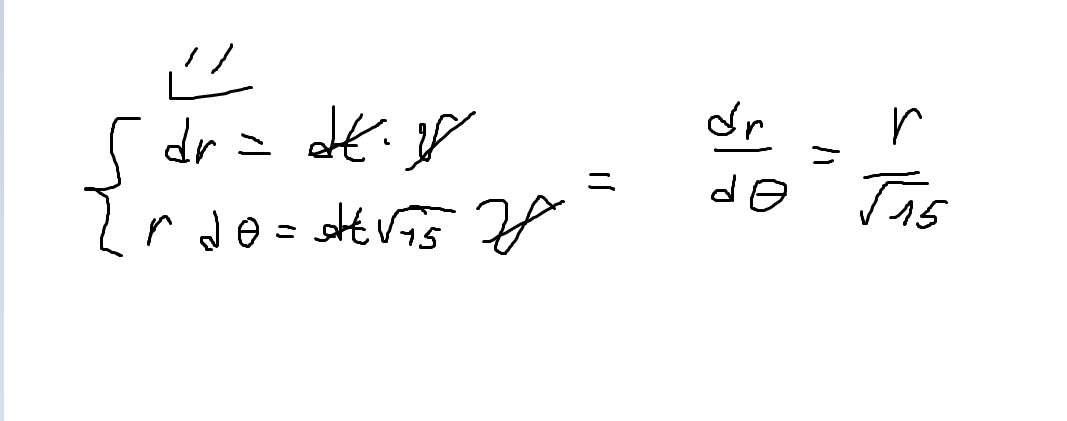 dr = dt · v
r dθ = dt √15 v = dr/dθ = r/√15